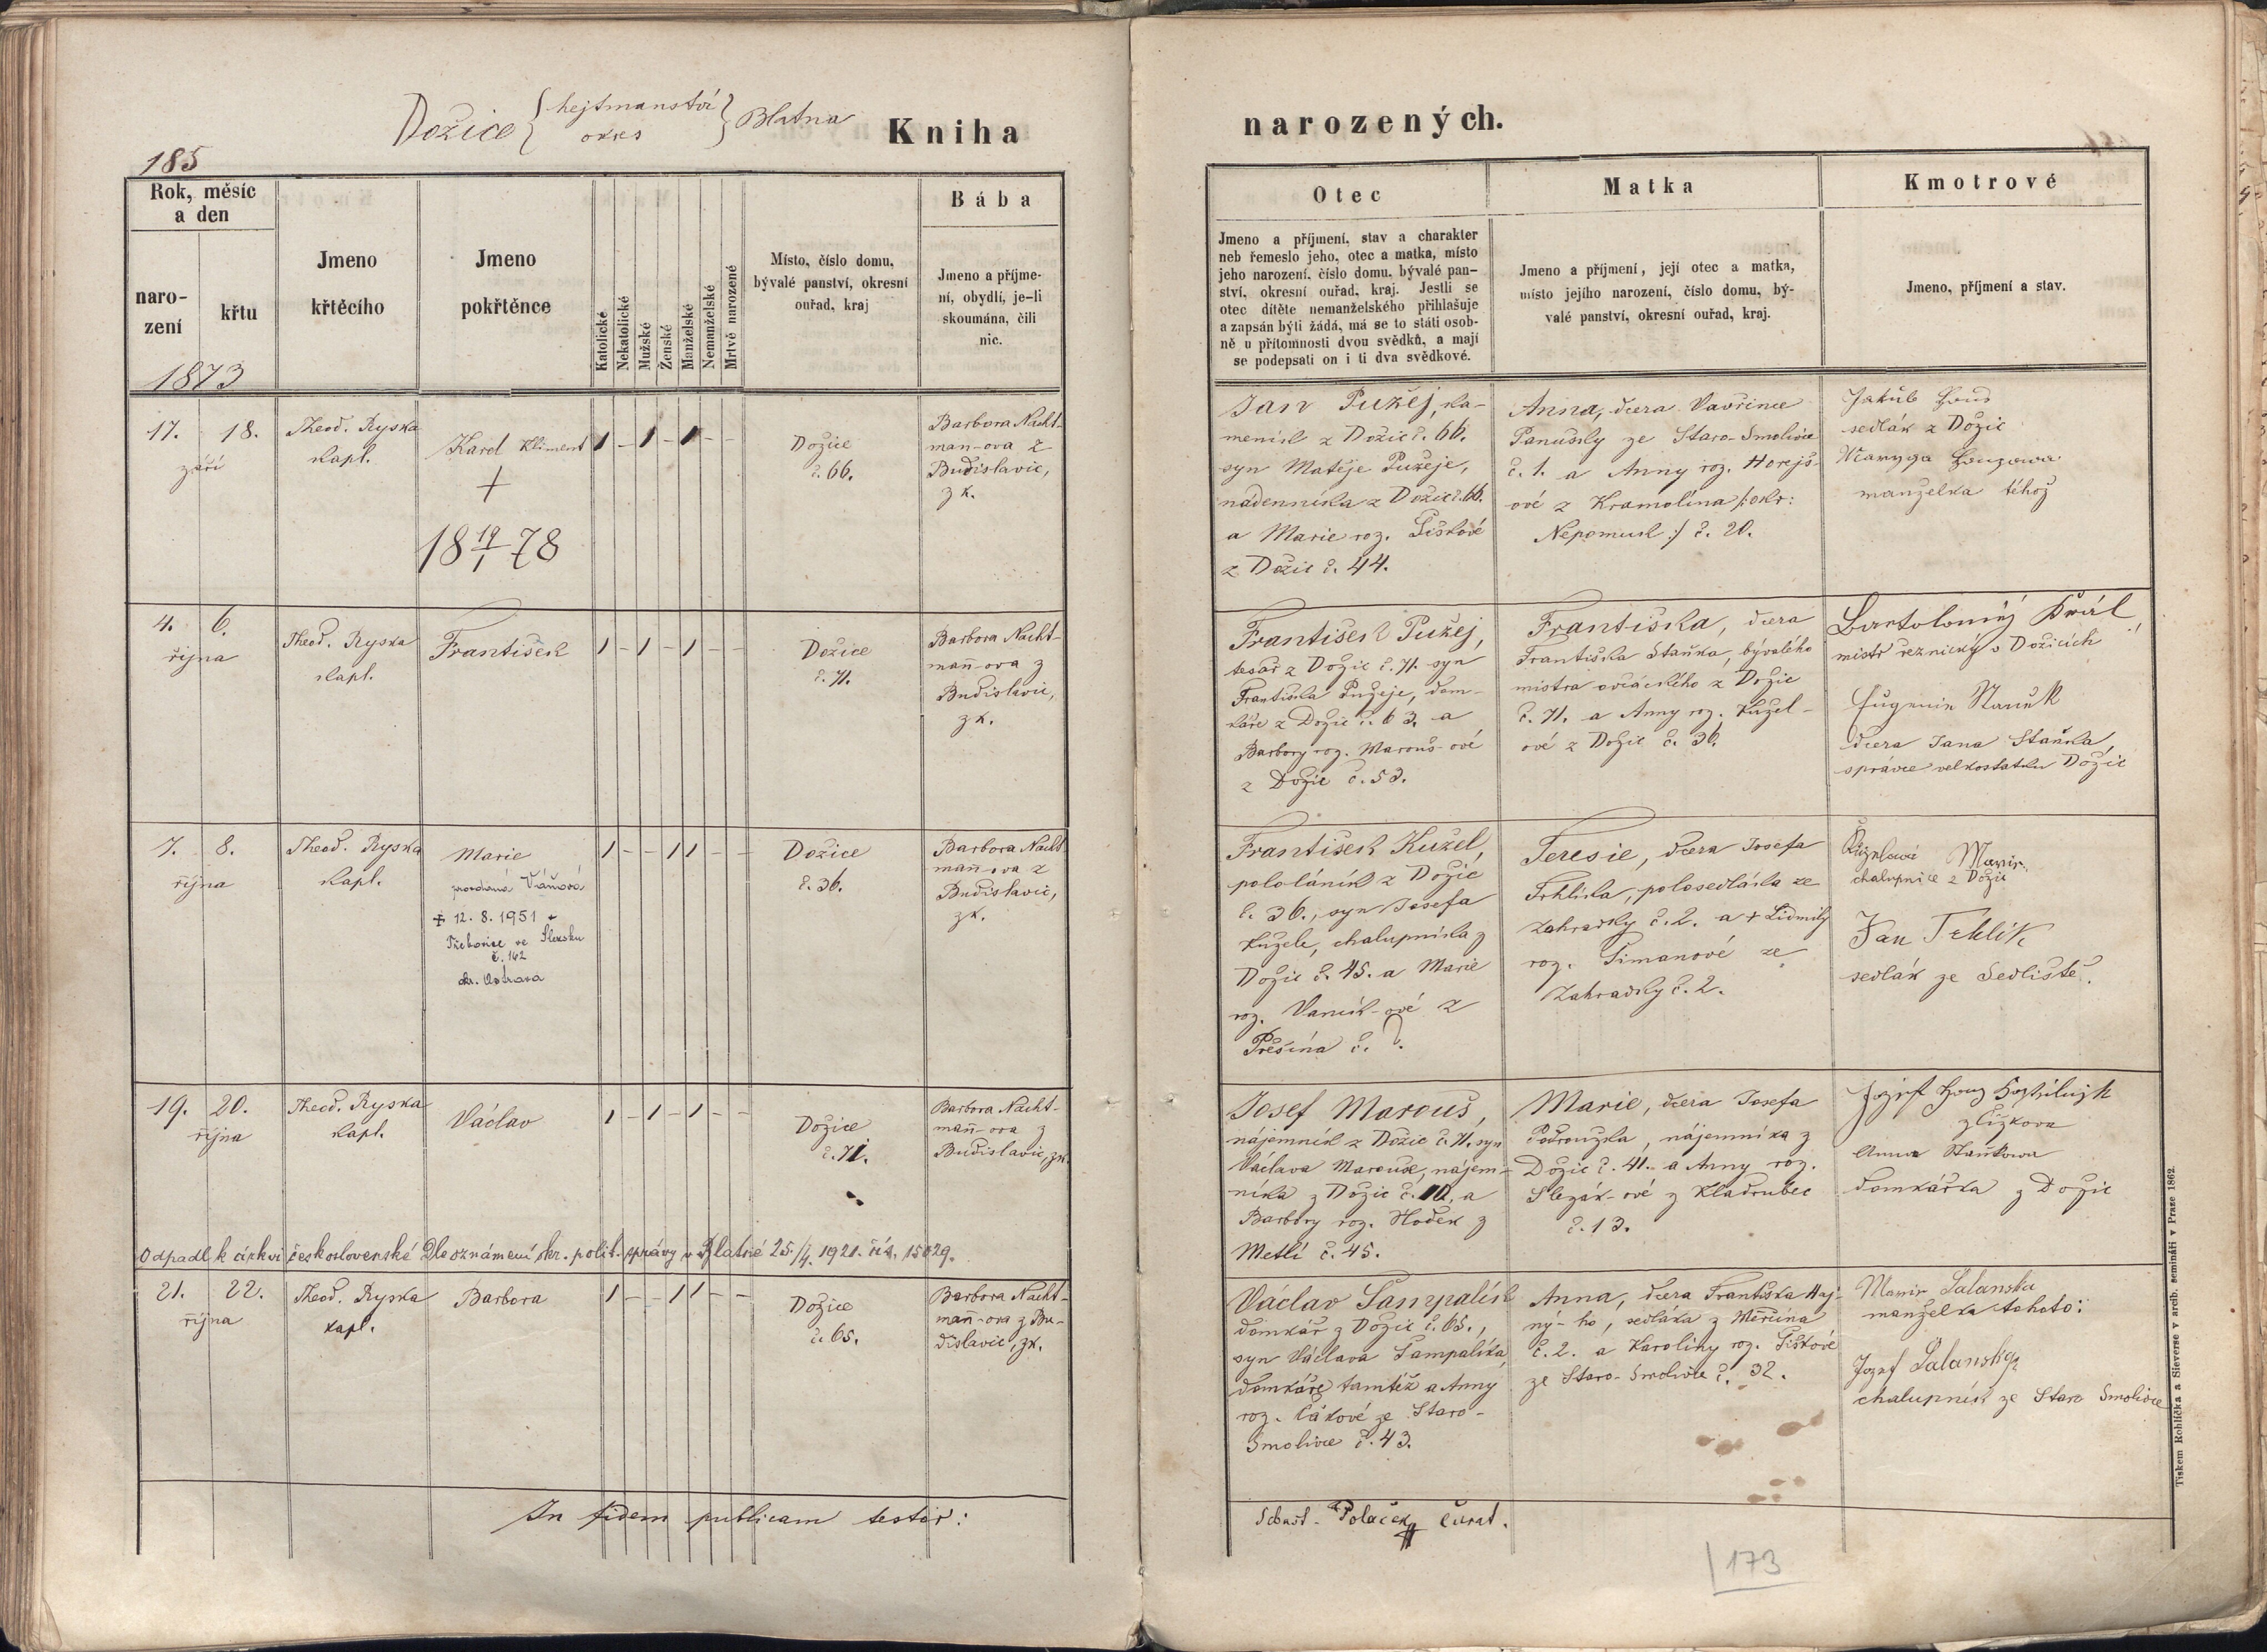 Dožice { hejtmanství okres } Blatna
Kniha
narozených.
185
Rok, měsíc
a den
naro-
zení
křtu
Jmeno
křtěcího
Jmeno
pokřtěnce
Katolické
Nekatolické
Mužské
Ženské
Manželské
Nemanželské
Mrtvě narozené
Místo, číslo domu,
bývalé panství, okresní
ouřad, kraj
Bába
Jmeno a příjme-
ní, obydlí, je-li
skoumána, čili
nic.
Otec
Jmeno a příjmení, stav a charakter
neb řemeslo jeho, otec a matka, místo
jeho narození, číslo domu, bývalé pan-
ství, okresní ouřad, kraj. Jestli se
otec dítěte nemanželského přihlašuje
a zapsán býti žádá, má se to státi osob-
ně u přítomnosti dvou svědků, a mají
se podepsati on i ti dva svědkové.
Matka
Jmeno a příjmení, její otec a matka,
místo jejího narození, číslo domu, bý-
valé panství, okresní ouřad, kraj.
Kmotrové
Jmeno, příjmení a stav.
1873
17. 18.
září
Theod. Ryska
kapl.
Karel Kliment
+
18 19/1 78
1 - 1 - 1 - -
Dožice
č. 66.
Barbora Nacht-
man-ova z
Budislavic,
zk.
Jan Pužej, ka-
meník z Dožic č. 66.
syn Matěje Pužeje,
nádenníka z Dožic č. 66.
a Marie roz. Šiškové
z Dožic č. 44.
Anna, dcera Vavřince
Panušky ze Staro-Smolivce
č. 1. a Anny roz. Horejš-
ové z Kramolína /: okr:
Nepomuk :/ č. 20.
Jakub
sedlák z Dožic
manželka téhož
4. 6.
října
Theod. Ryska
kapl.
František
1 - 1 - 1 - -
Dožice
č. 71.
Barbora Nacht-
mann-ova z
Budislavic,
zk.
František Pužej,
tesař z Dožic č. 71. syn
Františka Pužeje, dom-
káře z Dožic č. 63. a
Barbory roz. Marouš-ové
z Dožic č. 53.
Františka, dcera
Františka Staňka, bývalého
mistra ovčáckého z Dožic
č. 71. a Anny roz. Kužel-
ové z Dožic č. 36.
Bartoloměj Král,
mistr řeznický v Dožicích
Eugenie Staněk
dcera Jana Staňka,
správce velkostatku Dožic
7. 8.
října
Theod. Ryska
kapl.
Marie
provdaná Váňová
+ 12. 8. 1951 v
Třebovice ve Slezsku
č. 162
okr. Ostrava
1 - - 1 1 - -
Dožice
č. 36.
Barbora Nacht-
mann-ova z
Budislavic,
zk.
František Kužel,
pololáník z Dožic
č. 36., syn Josefa
Kužele, chalupníka z
Dožic č. 45. a Marie
roz. Vaník-ové z
Přešína č. ?.
Teresie, dcera Josefa
Trhlíka, polosedláka ze
Zahradky č. 2. a + Lidmily
roz. Šimanové ze
Zahradky č. 2.
Kuželová Marie
chalupnice z Dožic
Jan Trhlík
sedlák ze Sedliště.
19. 20.
října
Theod. Ryska
kapl.
Václav
1 - 1 - 1 - -
Dožice
č. 71.
Barbora Nacht-
mann-ova z
Budislavic, zk.
Josef Marouš,
nájemník z Dožic č. 71. syn
Václava Marouše, nájem-
níka z Dožic č. 10, a
Barbory roz. Hodek z
Metlí č. 45.
Marie, dcera Josefa
Podrouzka, nájemníka z
Dožic č. 41. a Anny roz.
Slezák-ové z Kladrubec
č. 13.
Anna Staňkowa
domkářka z Dožic
Odpadl k církvi československé dle oznámení okr. polit. správy v Blatné 25./4. 1921. čís. 15029.
21. 22.
října
Theod. Ryska
kapl.
Barbora
1 - - 1 1 - -
Dožice
č. 65.
Barbora Nacht-
mann-ova z Bu-
dislavic, zk.
Václav Šampalík
domkář z Dožic č. 65.,
syn Václava Šampalíka,
domkáře tamtéž a Anny
roz. Cákové ze Staro-
Smolivce č. 43.
Anna, dcera Františka Haj-
ný-ho, sedláka z Měrčína
č. 2. a Karoliny roz. Šiškové
ze Staro-Smolivce č. 32.
Marie Salanska
manželka tohoto:
Jozef Salanský
chalupník ze Staro Smolivce
In fidem publicam testor:
Sebast. Polaček curat.
173
Tiskem Rohlíčka a Sieverse v arcib. semináři v Praze 1862.